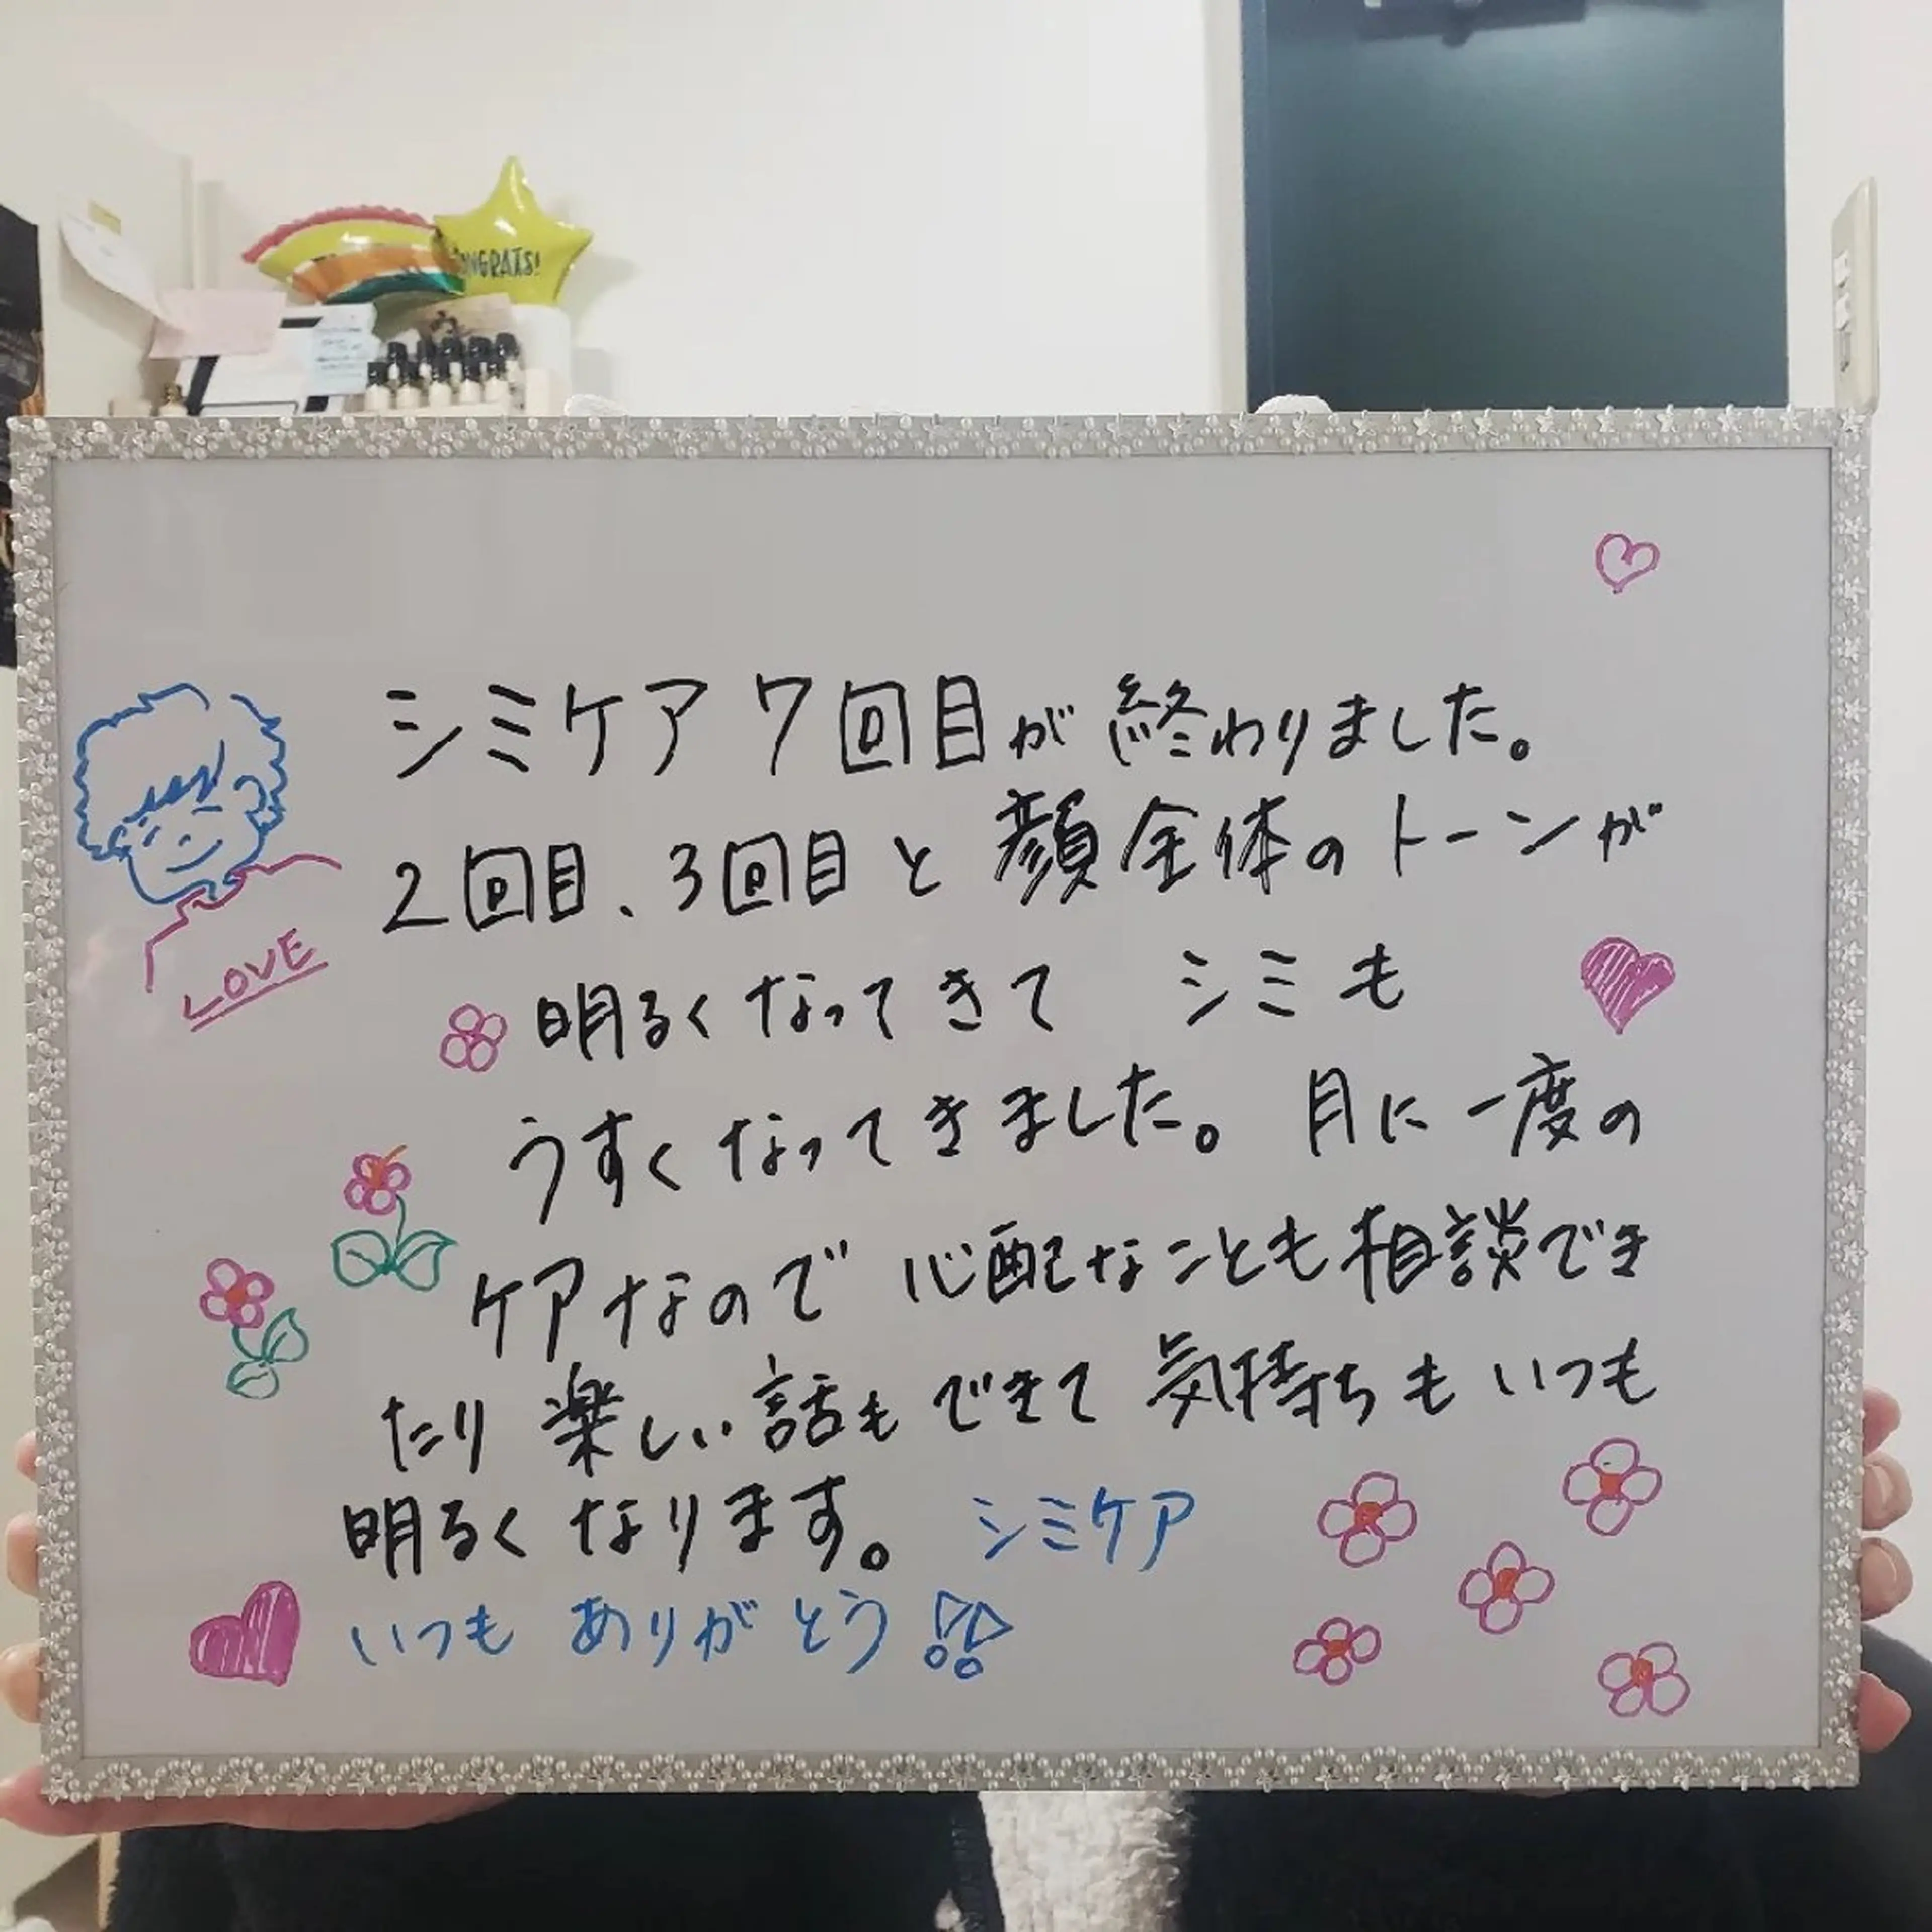 CONGRATS!
シミケア 7回目が終わりました。
2回目、3回目と顔全体のトーンが
明るくなってきて シミも
うすくなってきました。月に一度の
ケアなので 心配なことも相談でき
たり 楽しい話もできて 気持ちもいつも
明るくなります。 シミケア
いつも ありがとう!!
LOVE